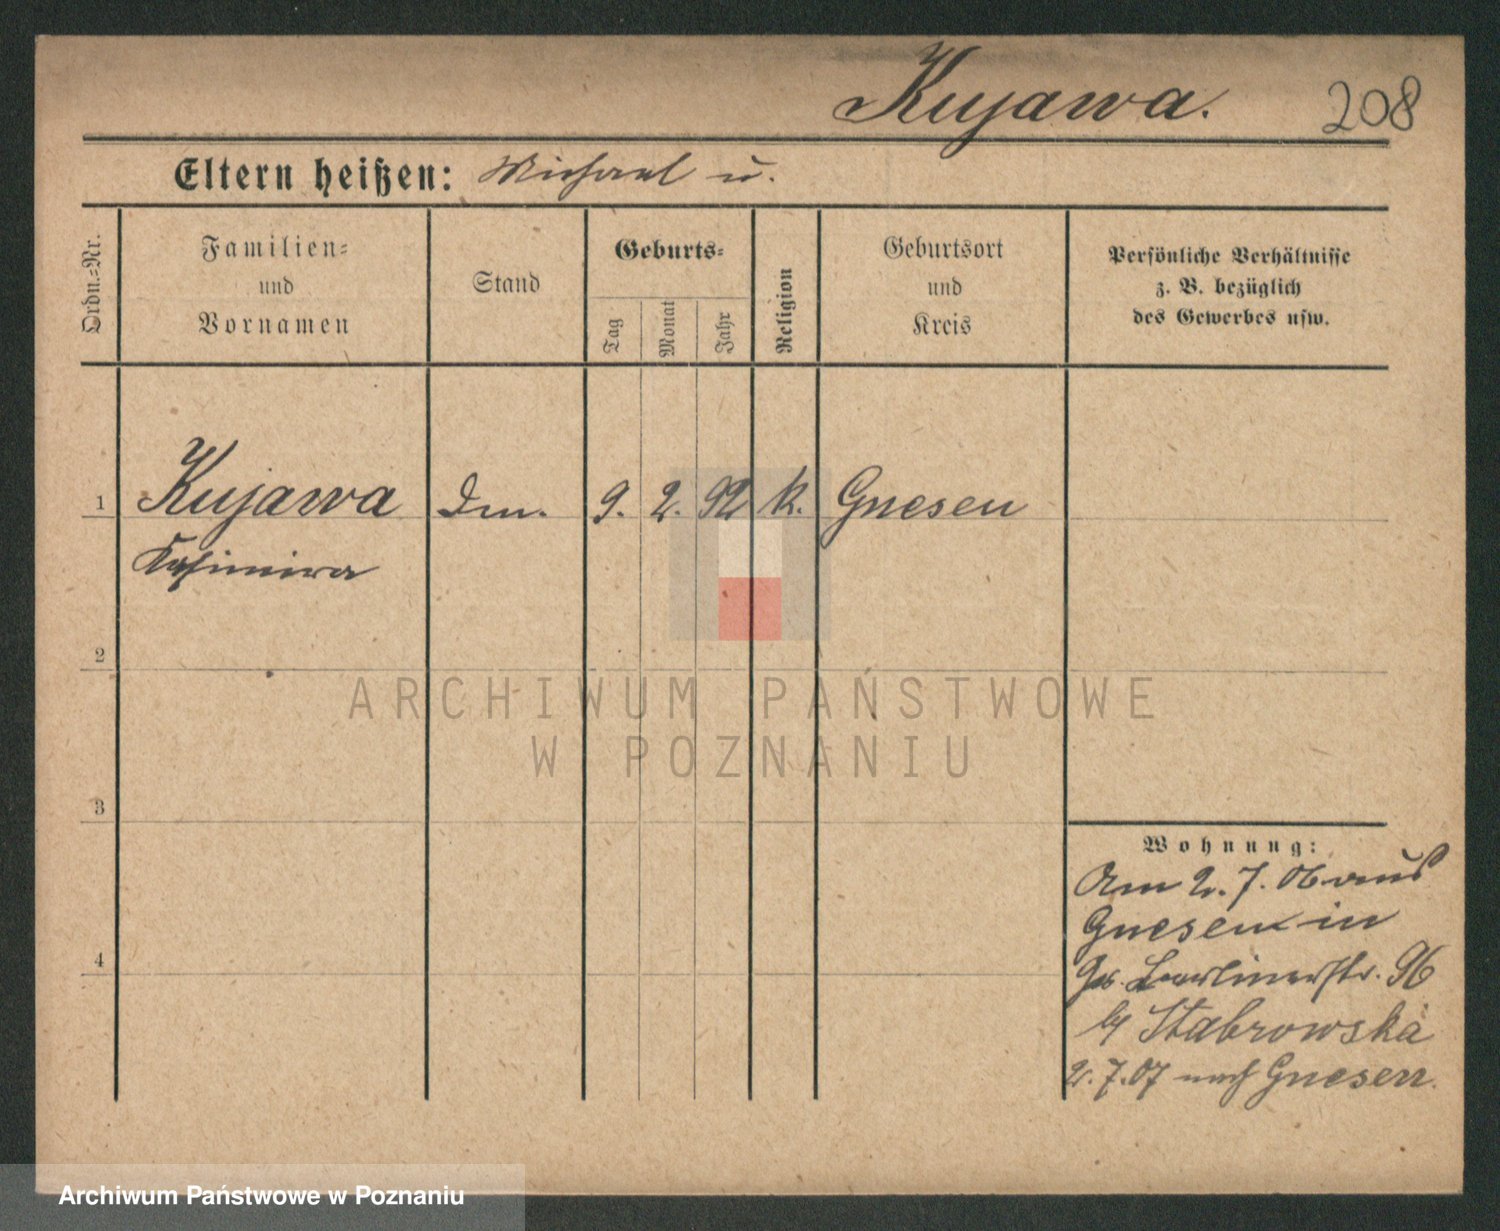 Kujawa.
208
Eltern heißen: Michael u.
Ordn.-Nr.
Familien-
und
Vornamen
Stand
Geburts-
Tag
Monat
Jahr
Religion
Geburtsort
und
Kreis
Persönliche Verhältnisse
z. B. bezüglich
des Gewerbes usw.
1 Kujawa 9. 2. 92 k. Gnesen
Kasimira
2
3
4
Wohnung:
Am 2. 7. 06 aus
Gnesen in
Gr. Berlinerstr. 96
by Stabrowska
2. 7. 07 nach Gnesen.
ARCHIWUM PAŃSTWOWE
W POZNANIU
Archiwum Państwowe w Poznaniu